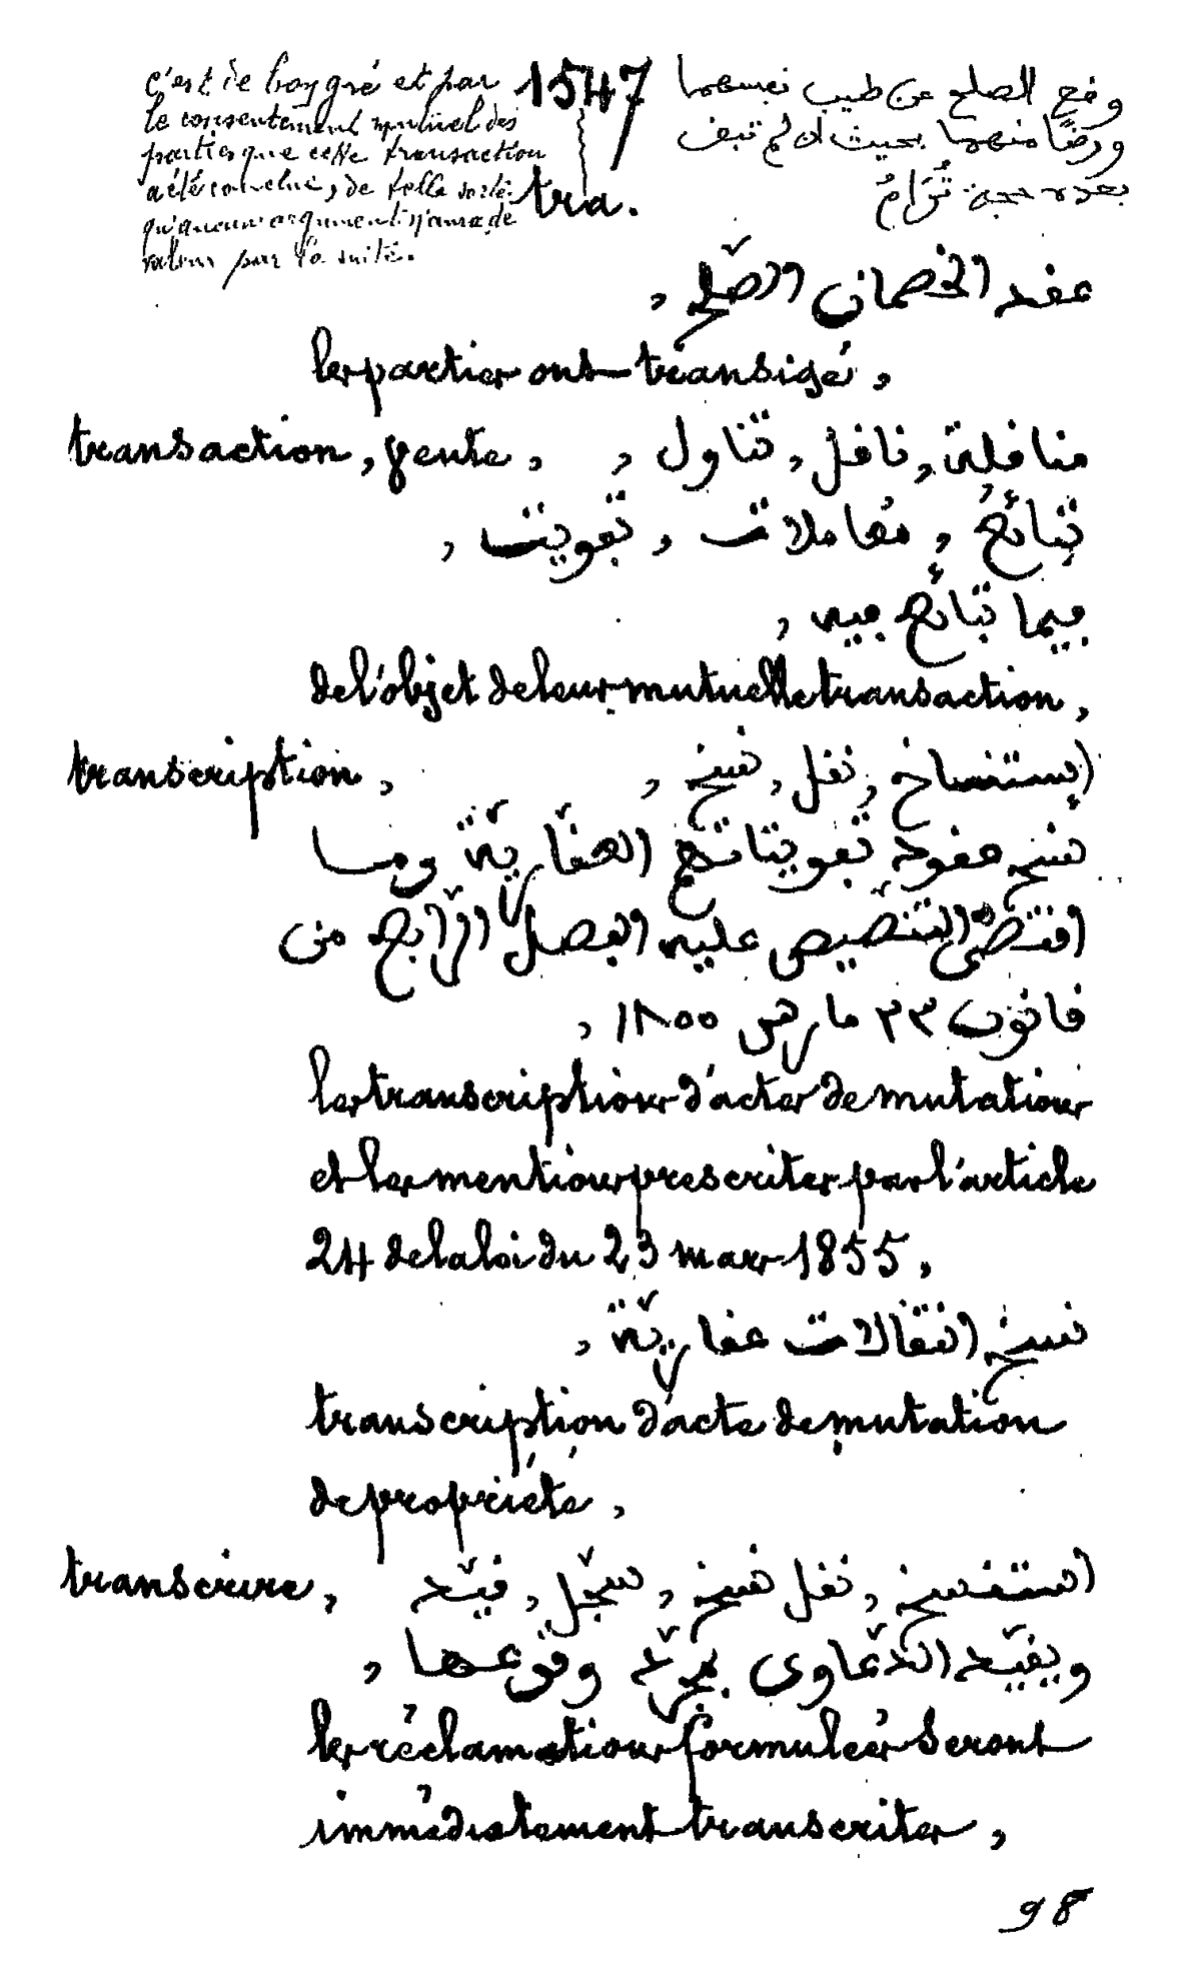 c'est de bon gré et par
le consentement mutuel des
parties que cette transaction
a été conclue, de telle sorte
qu'aucun argument n'aura de
valeur par la suite.
1547
tra.
وقع الصلح عن طيب نفسهما
ورضًا منهما بحيث ان لم تبق
بعده حجة تُرَامُ
عقد الخصمان الصّلح ,
les parties ont transigé ,
transaction, vente , مناقلة , ناقل , تناول ,
تبائُع , مُعاملات , تفويت ,
فيما تبائع فيه ,
de l'objet de leur mutuelle transaction ,
transcription , إستنساخ , نقل , نسخ ,
نسخ عقود تفويتاتهم العقّاريّة وما
اقتضى التنصيص عليه الفصل الرّابع من
قانون ٢٣ مارس ١٨٥٥ ,
les transcriptions d'actes de mutations
et les mentions prescrites par l'article
24 de la loi du 23 mars 1855 ,
نسخ انتقالات عقاريّة ,
transcription d'acte de mutation
de propriété ,
transcrire , استنسخ , نقل نسخ , سجّل , قيّد
ويقيّد الدّعاوى بمجرّد وقوعها ,
les réclamations formulées seront
immédiatement transcrites ,
98